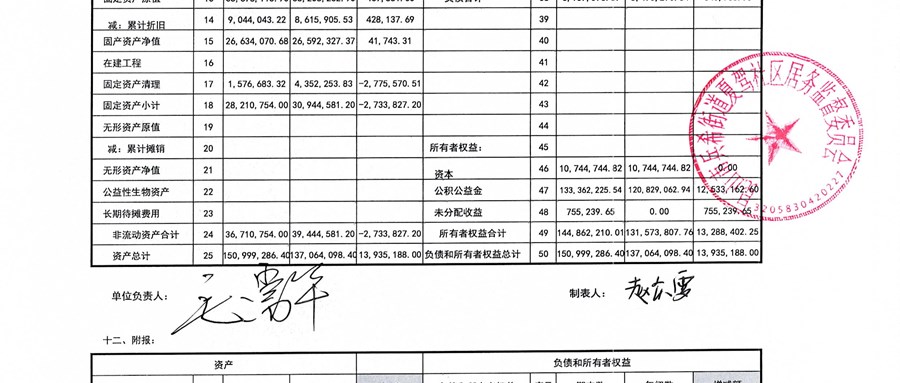 减：累计折旧 14 9,044,043.22 8,615,905.53 428,137.69 39
固产资产净值 15 26,634,070.68 26,592,327.37 41,743.31 40
在建工程 16 41
固定资产清理 17 1,576,683.32 4,352,253.83 -2,775,570.51 42
固定资产小计 18 28,210,754.00 30,944,581.20 -2,733,827.20 43
无形资产原值 19 44
减：累计摊销 20 所有者权益： 45
无形资产净值 21 资本 46 10,744,744.82 10,744,744.82 0.00
公益性生物资产 22 公积公益金 47 133,362,225.54 120,829,062.94 12,533,162.60
长期待摊费用 23 未分配收益 48 755,239.65 0.00 755,239.65
非流动资产合计 24 36,710,754.00 39,444,581.20 -2,733,827.20 所有者权益合计 49 144,862,210.01 131,573,807.76 13,288,402.25
资产总计 25 150,999,286.40 137,064,098.40 13,935,188.00 负债和所有者权益总计 50 150,999,286.40 137,064,098.40 13,935,188.00
兵希街道夏驾社区居务监督委员会
3205830420227
单位负责人： 制表人：
十二、附报：
资产 负债和所有者权益